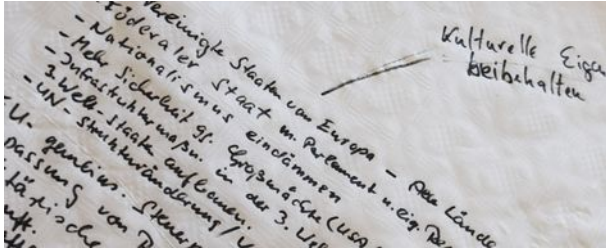 Vereinigte Staaten von Europa – Alle Länder
- Föderaler Staat m. Parlament u. eig.
- Nationalismus eindämmen
- Mehr Sicherheit gg. Großmächte (USA
- Infrastrukturmaßn. in der 3. Wel
3. Welt-Staaten aufbauen.
- UN-Strukturänderung/V
U. gemeins. Steuer
passung von
tärische
Kulturelle Eigen
beibehalten